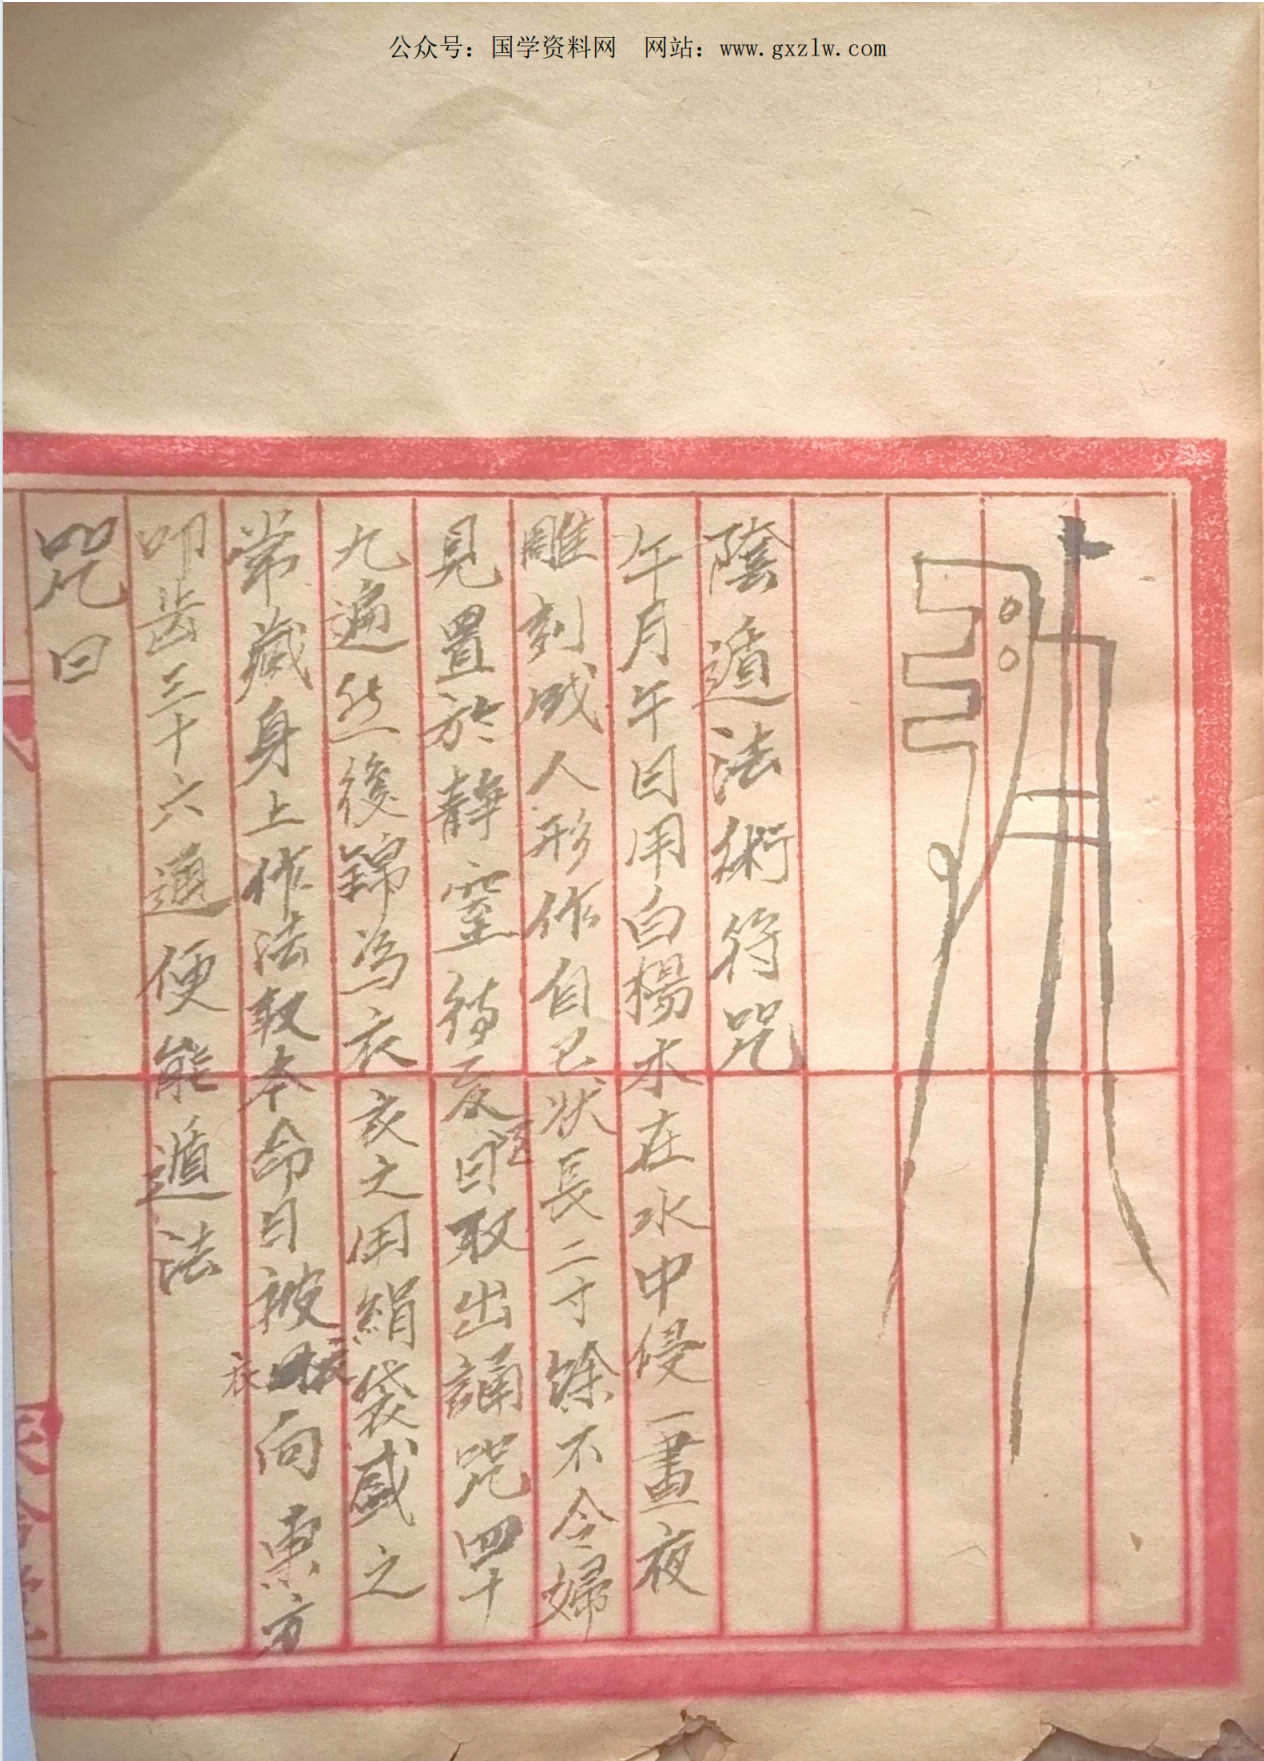 公众号：国学资料网　网站：www.gxzlw.com
陰遁法術符咒
午月午日用白楊木在水中侵一晝夜
雕刻成人形作自己状長二寸餘不令婦
見置於静室待亥日取出誦咒四十
九遍然後錦為衣衣之用絹袋盛之
常藏身上作法取本命日被衣向東方
叩齿三十六通便能遁法
咒曰